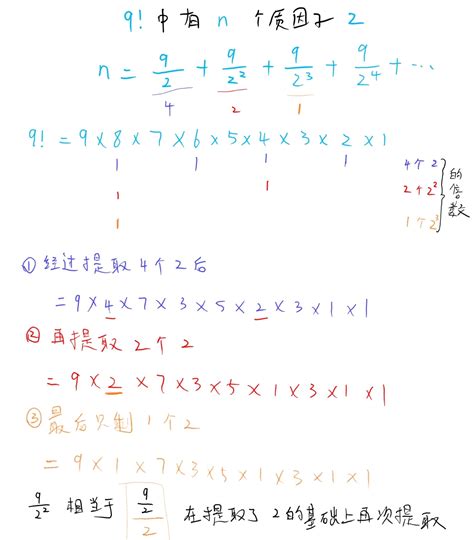 9! 中有 n 个质因子 2
n = 9/2 + 9/2² + 9/2³ + 9/2⁴ + ...
4 2 1
9! = 9 × 8 × 7 × 6 × 5 × 4 × 3 × 2 × 1
1 1 1 1 4个2
1 1 2个2² 的倍数
1 1个2³
① 经过提取 4 个 2 后
= 9 × 4 × 7 × 3 × 5 × 2 × 3 × 1 × 1
② 再提取 2 个 2
= 9 × 2 × 7 × 3 × 5 × 1 × 3 × 1 × 1
③ 最后只剩 1 个 2
= 9 × 1 × 7 × 3 × 5 × 1 × 3 × 1 × 1
9/2² 相当于 (9/2)/2 在提取了 2 的基础上再次提取